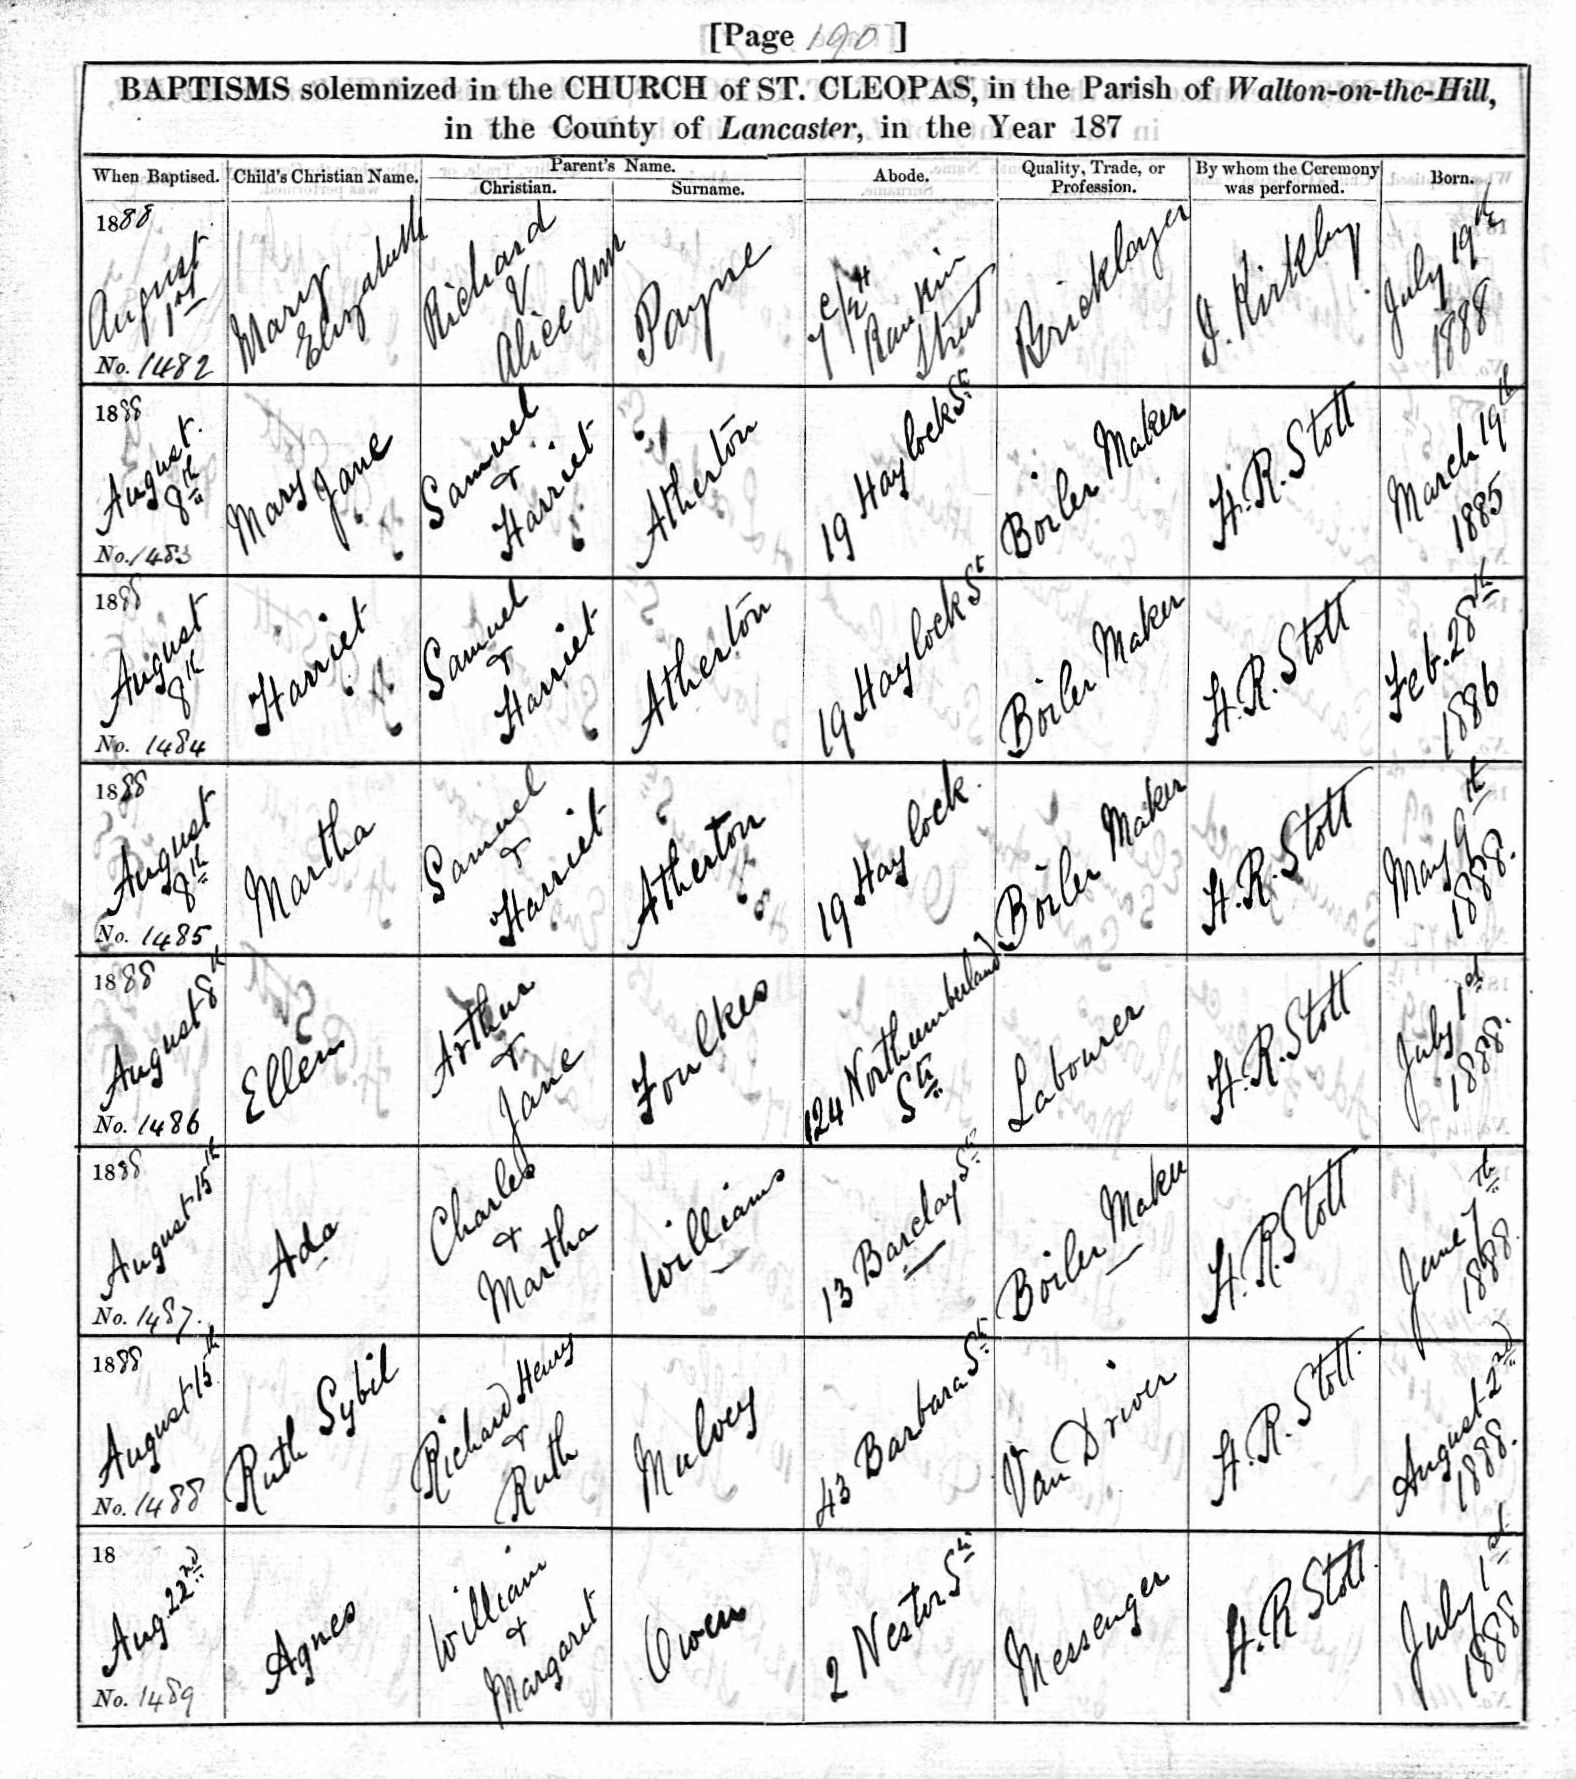 [Page 190]
BAPTISMS solemnized in the CHURCH of ST. CLEOPAS, in the Parish of Walton-on-the-Hill,
in the County of Lancaster, in the Year 187
When Baptised. Child's Christian Name. Parent's Name. Christian. Surname. Abode. Quality, Trade, or Profession. By whom the Ceremony was performed. Born.
1888
August 1st
No. 1482
Mary Elizabeth
Richard & Alice Ann
Payne
Street
Bricklayer
Kirkby
July 19th 1888
1888
August. 8th
No. 1483
Mary Jane
Samuel & Harriet
Atherton
19 Haylock St
Boiler Maker
H. R. Stott
March 19th 1885
1888
August 8th
No. 1484
Harriet
Samuel & Harriet
Atherton
19 Haylock St
Boiler Maker
H. R. Stott
Feb. 28th 1886
1888
August 8th
No. 1485
Martha
Samuel & Harriet
Atherton
19 Haylock.
Boiler Maker
H. R. Stott
May 9th 1888.
1888
August 8th
No. 1486
Ellen
Arthur & Jane
Foulkes
124 Northumberland St
Labourer
H. R. Stott
July 1st 1888.
1888
August 15th
No. 1487.
Ada
Charles & Martha
Williams
13 Barclay St
Boiler Maker
H. R. Stott
June 7th 1888.
1888
August 15th
No. 1488
Ruth Sybil
Richard Henry & Ruth
Mulvey
43 Barbara St
Van Driver
H. R. Stott.
August 2nd 1888.
18
Aug. 22nd
No. 1489
Agnes
William & Margaret
Owen
2 Nestor St
Messenger
H. R. Stott
July 1st 1888